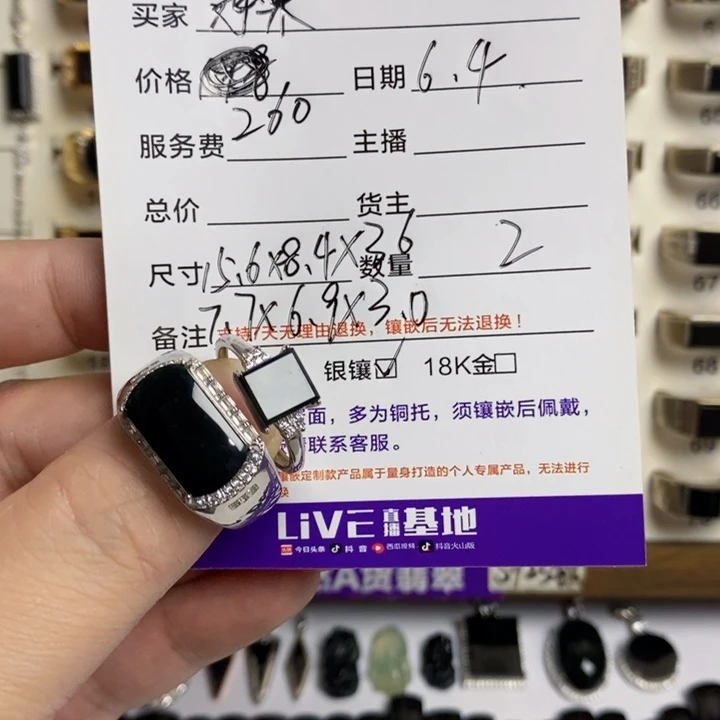 买家
价格 日期 6.4
260
服务费 主播
总价 货主
尺寸 15.6x8.4x2.6 数量 2
7.7x6.9x3.0
备注 支持7天无理由退换，镶嵌后无法退换！
银镶☑ 18K金□
面，多为铜托，须镶嵌后佩戴，
联系客服。
镶嵌定制款产品属于量身打造的个人专属产品，无法进行
换
LiVE 直播 基地
今日头条 抖音 西瓜视频 抖音火山版
A货翡翠
67
68
69